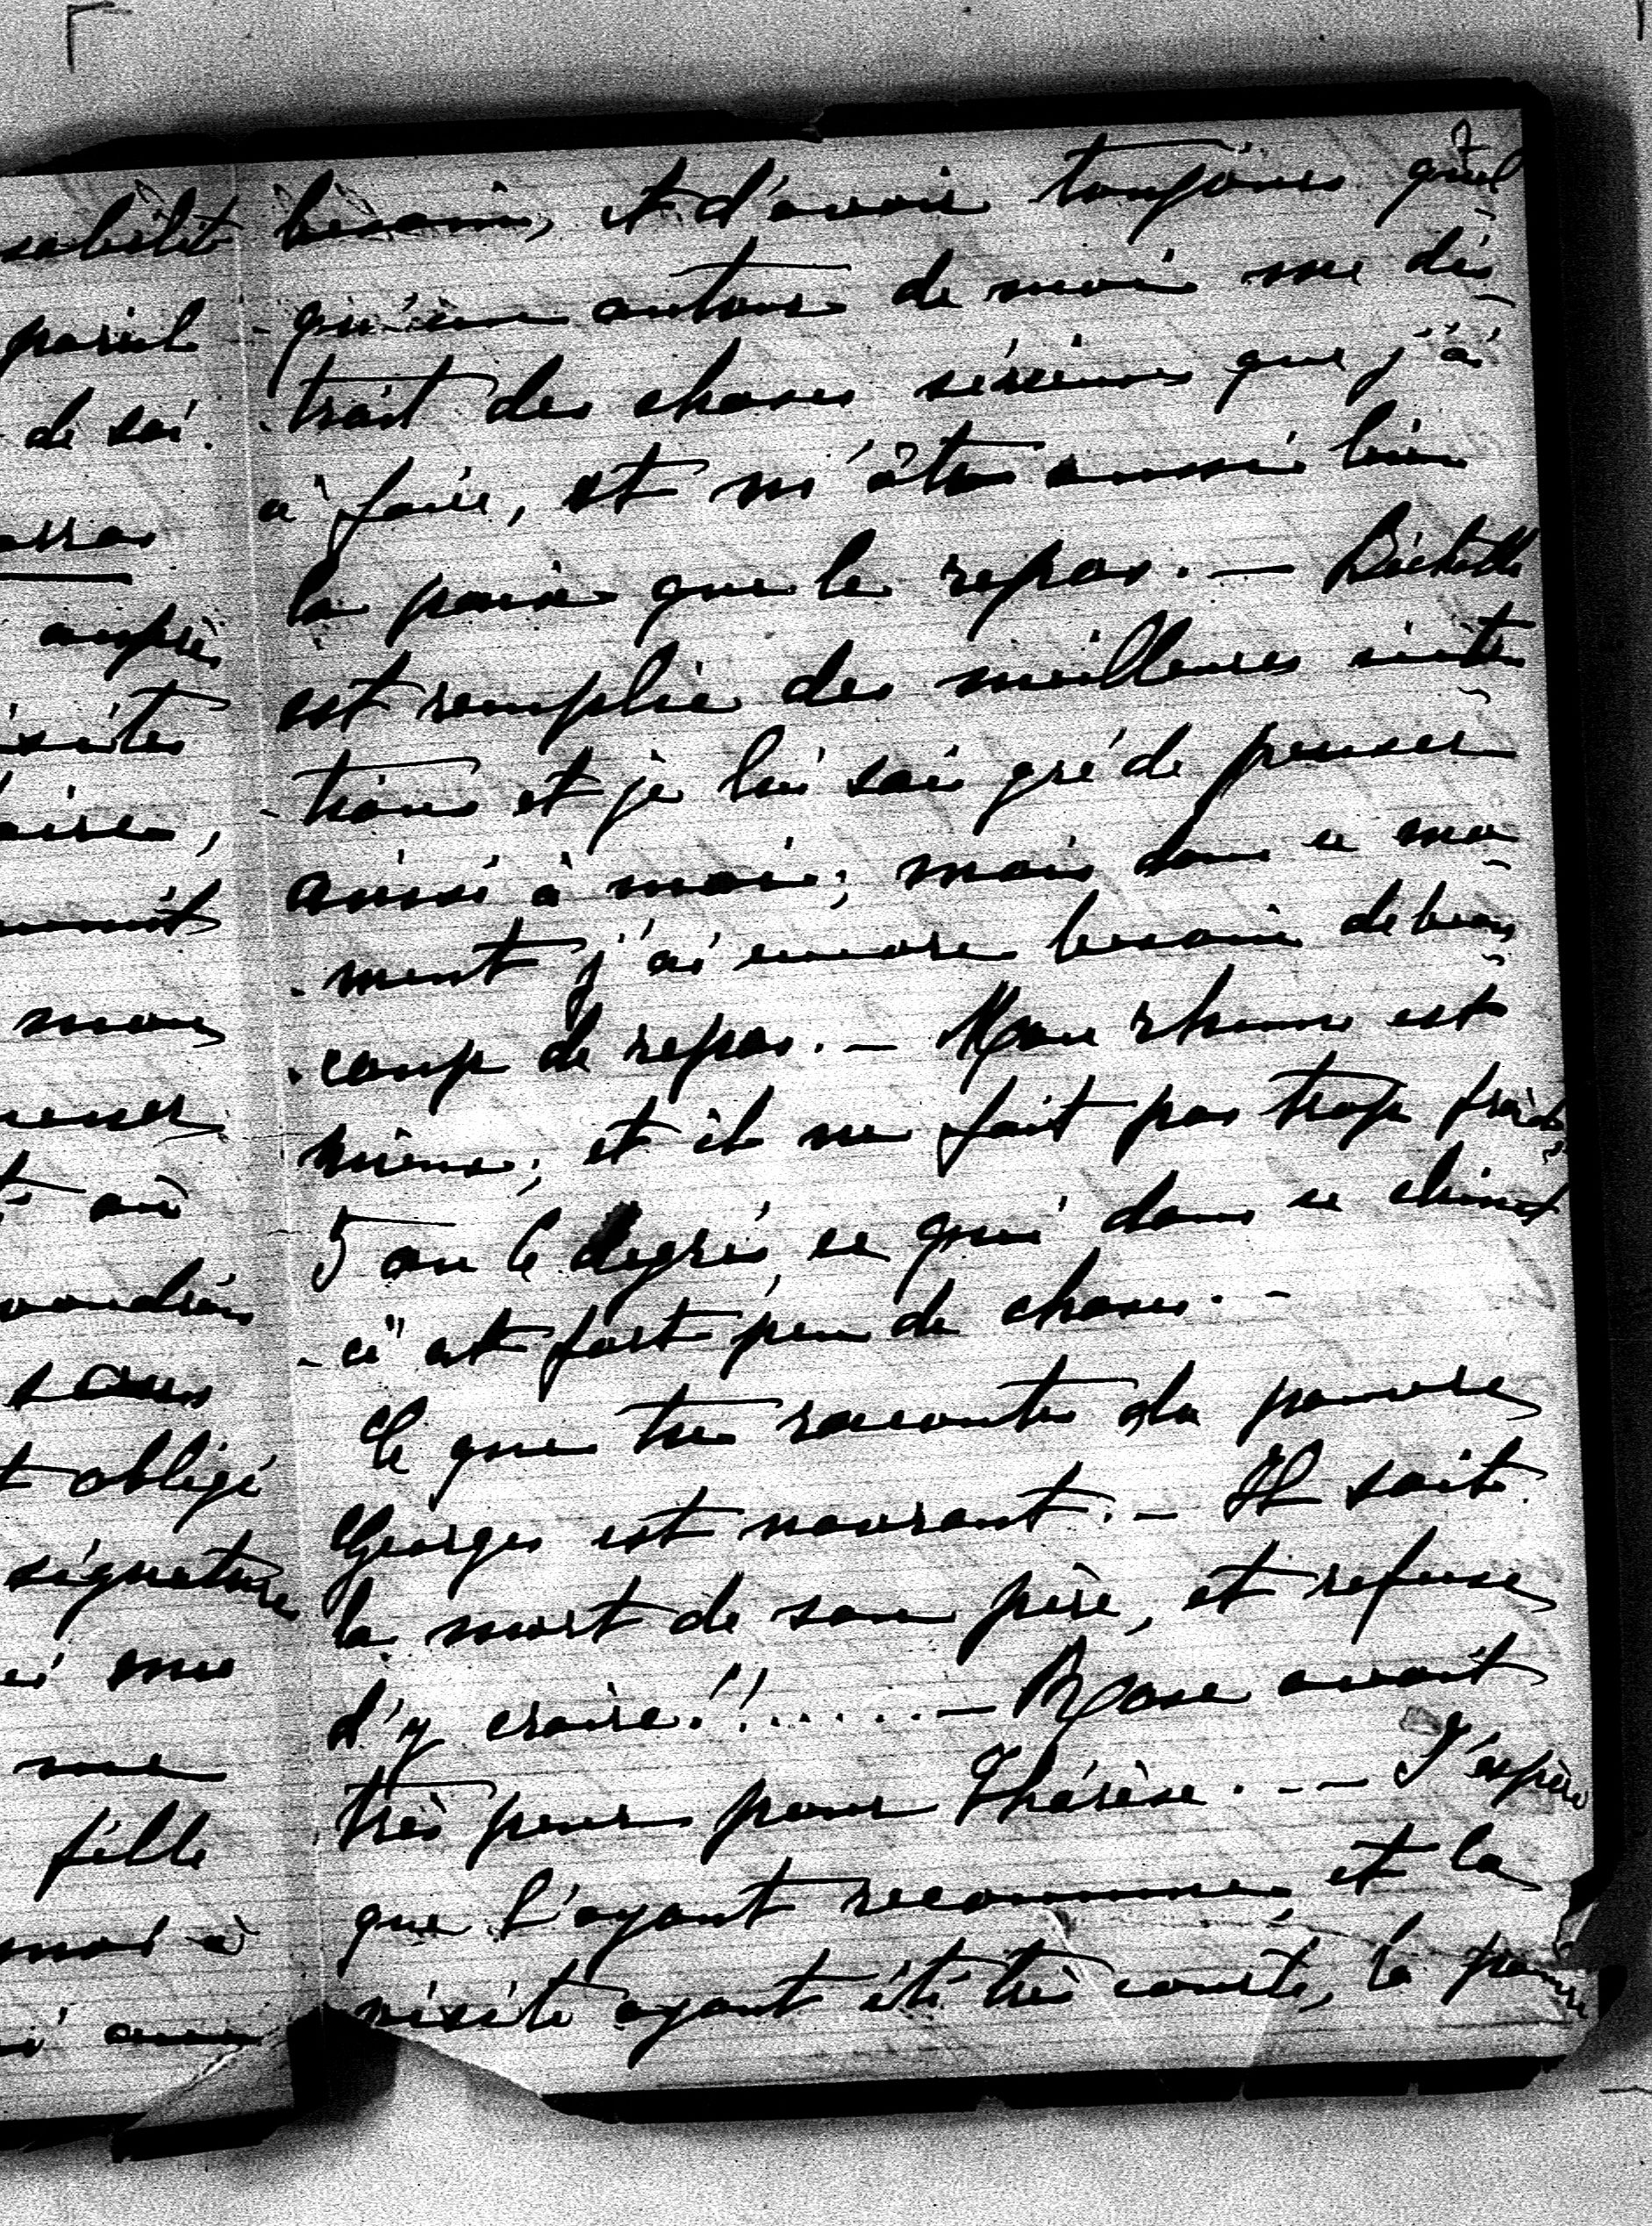 sabilit
pareil
de soi.
auprès
visites
aire,
mon
mener
où
voudrais
sans
t obligé
signature
i me
me
fille
moi à
besoin, et d'avoir toujours quel
-qu'un autour de moi me dis
-trait des choses sérieuses que j'ai
à faire, et m'ôte aussi bien
la paix que le repos. —
est remplie des meilleures inten
-tions et je lui sais gré de penser
ainsi à moi; mais dans ce mo
-ment j'ai encore besoin de beau
-coup de repos. — Mon rhume est
mieux; et il ne fait pas trop froid
5 ou 6 degrés, ce qui dans ce climat
-ci est fort peu de choses. -
Ce que tu racontes du pauvre
Georges est navrant. — Il sait
la mort de son père, et refuse
d'y croire!!...... — Rose avait
très peur pour Thérèse. — — J'espère
que l'ayant reconnue, et la
visite ayant été très courte, la pauvre